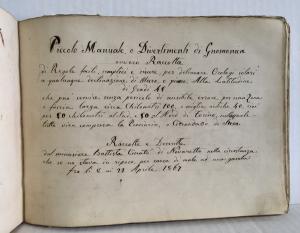 Piccolo Manuale e Divertimenti di Gnomonica
ovvero Raccolta
di Regole facili, semplici e sicure per delineare Orologi solari
a qualunque declinazione di Muro, e presso Alla Latitudine
di Gradi 45
che può servire senza pericolo di sensibile errore per una Zona
o fascia larga circa Chilometri 100, o miglia nostrali 40, cioè
per 50 chilometri al Sud, e 50 al Nord di Torino, nella quale
tutta vien compresa la Provincia, e Circondario di
Raccolte e Descritte
dal Battista di nella circostanza
che se ne stava in riposo per causa di male ad una gamba
fra li 8 ai 21 Aprile 1867